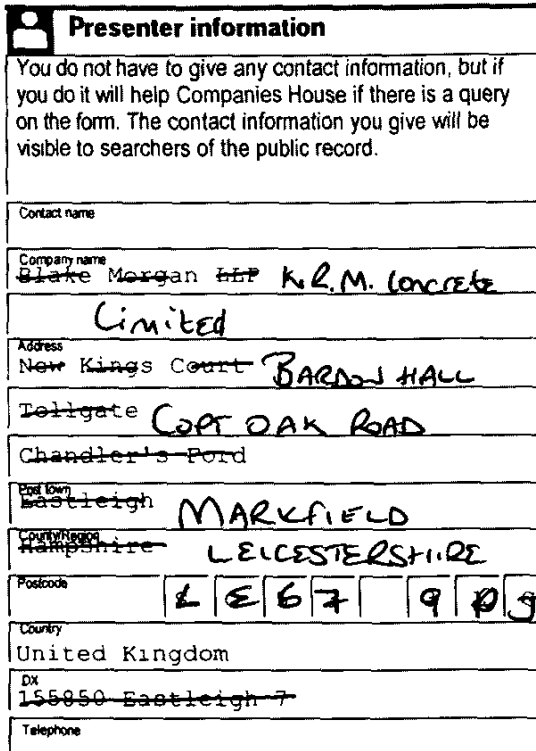 Presenter information
You do not have to give any contact information, but if
you do it will help Companies House if there is a query
on the form. The contact information you give will be
visible to searchers of the public record.
Contact name
Company name
Blake Morgan LLP K.R.M. Concrete
Limited
Address
New Kings Court BARDON HALL
Tollgate COPT OAK ROAD
Chandler's Ford
Post town
Eastleigh MARKFIELD
County/Region
Hampshire LEICESTERSHIRE
Postcode
LE67 9PJ
Country
United Kingdom
DX
155850 Eastleigh 7
Telephone